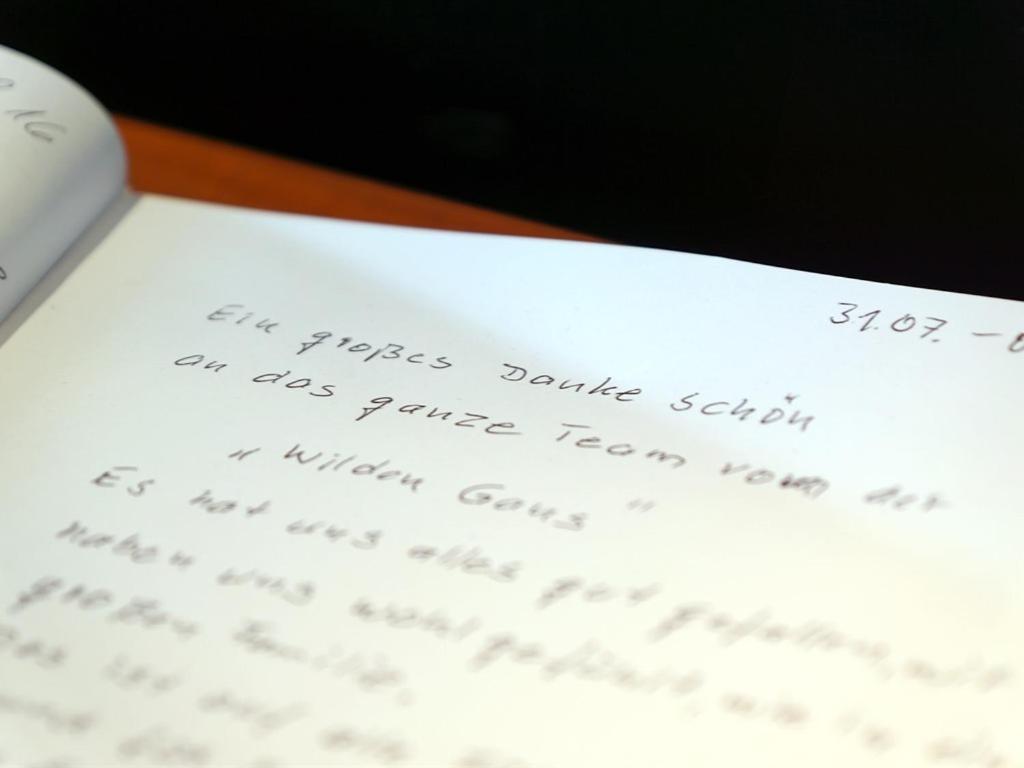 16
31.07. -
Ein großes Danke schön
an das ganze Team vom der
„ Wilden Gans "
Es hat uns alles gut gefallen, wir
haben uns wohl gefühlt, wie in
großen Familie.
Das ist